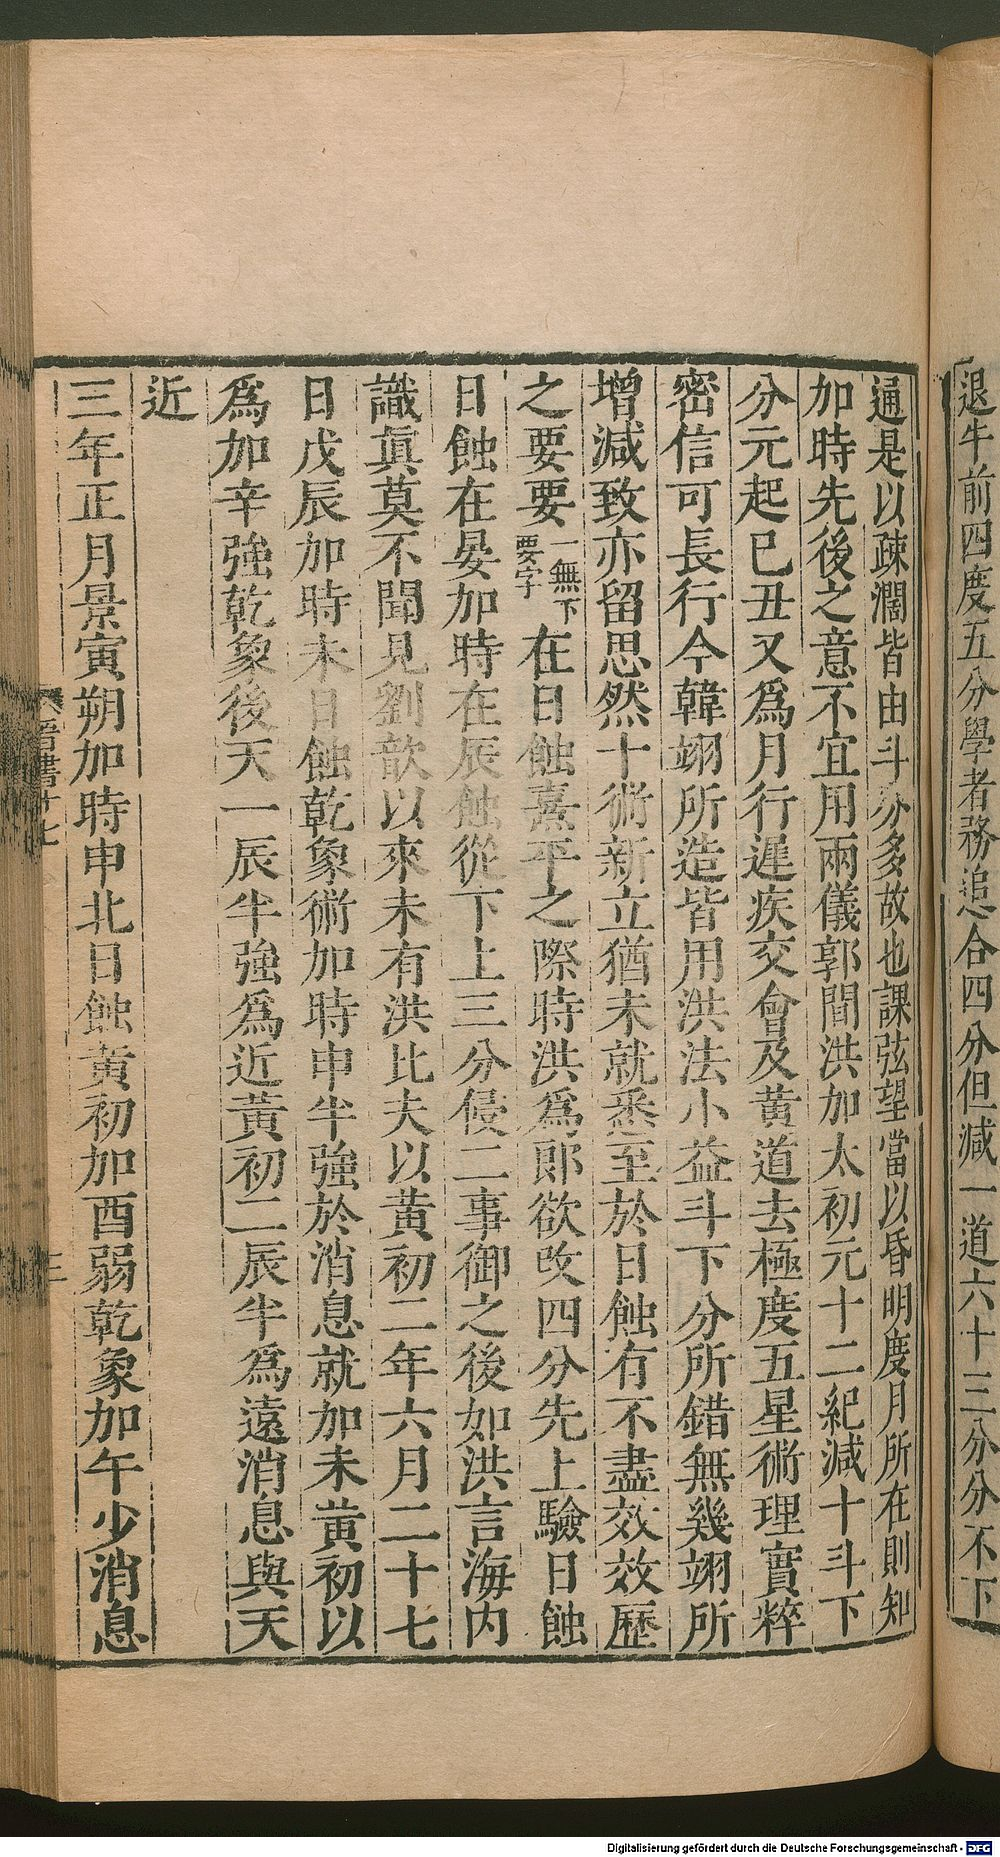 退牛前四度五分學者務追合四分但減一道六十三分分不下
通是以疎濶皆由斗分多故也課弦望當以昏明度月所在則知
加時先後之意不宜用兩儀郭間洪加太初元十二紀減十斗下
分元起已丑又爲月行遲疾交會及黄道去極度五星術理實粹
密信可長行今韓翊所造皆用洪法小益斗下分所錯無幾翊所
增減致亦留思然十術新立猶未就悉至於日蝕有不盡效效歷
之要要一無下要字在日蝕熹平之際時洪爲郎欲改四分先上驗日蝕
日蝕在晏加時在辰蝕從下上三分侵二事御之後如洪言海内
識眞莫不聞見劉歆以來未有洪比夫以黄初二年六月二十七
日戊辰加時未日蝕乾象術加時申半強於消息就加未黄初以
爲加辛強乾象後天一辰半強爲近黄初二辰半爲遠消息與天
近
三年正月景寅朔加時申北日蝕黄初加酉弱乾象加午少消息
晋書十七
三
Digitalisierung gefördert durch die Deutsche Forschungsgemeinschaft - DFG